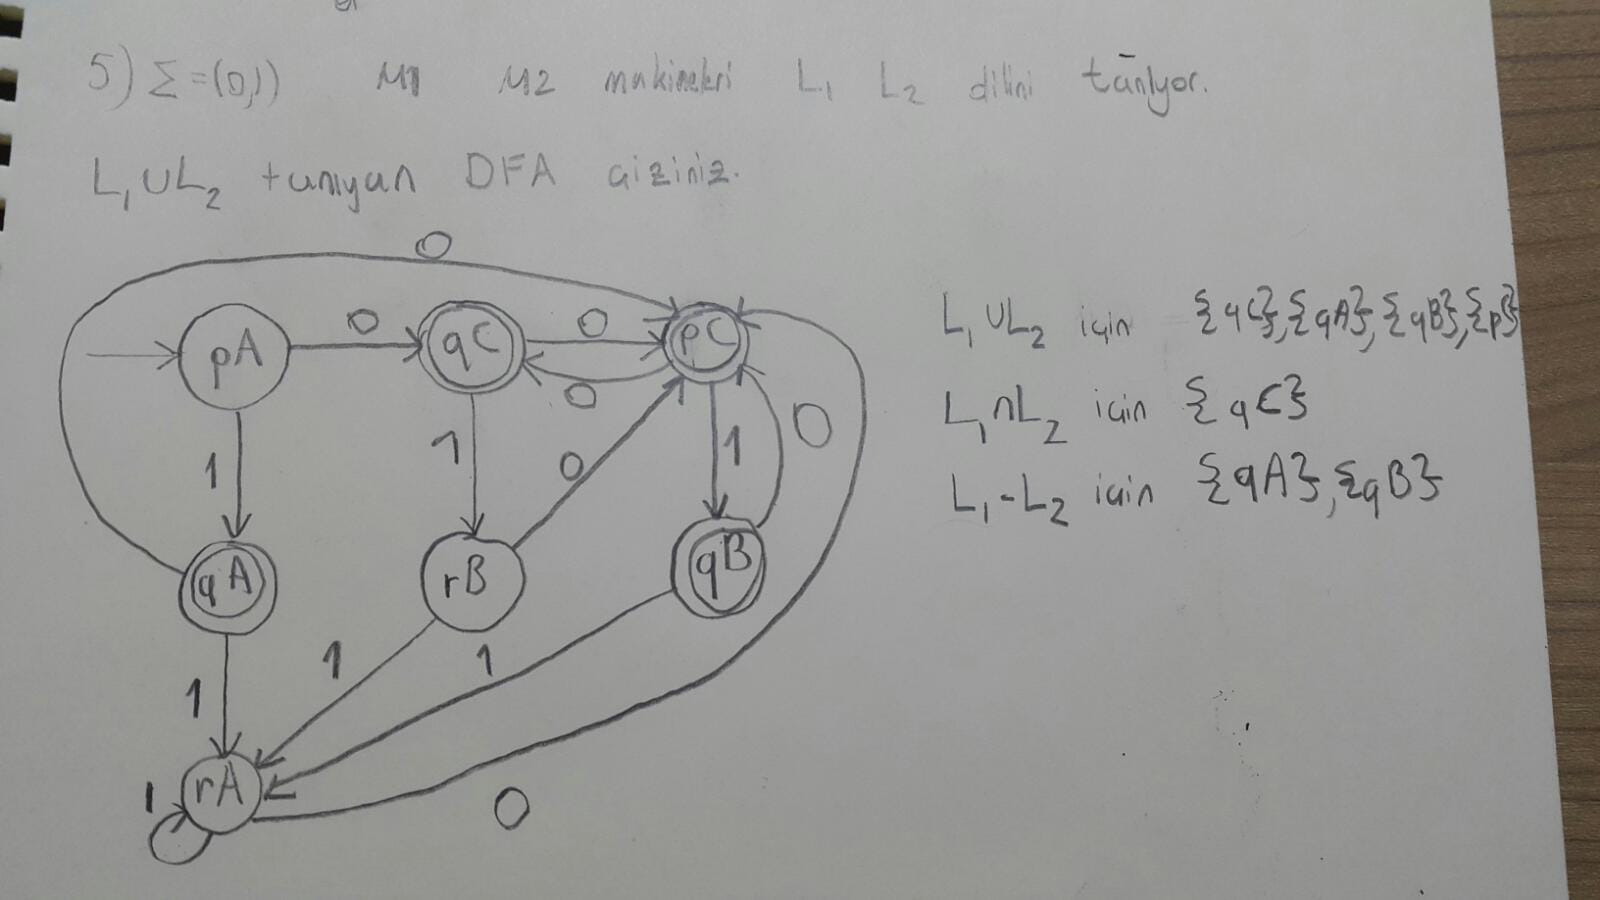 5) Σ=(0,1) M1 M2 makineleri L1 L2 dilini tanıyor.
L1 ∪ L2 tanıyan DFA çiziniz.
0
pA 0 qC 0 pC
0
1 1 0 1 0
qA rB qB
1 1 1
rA
1 0
L1 ∪ L2 için {qC}, {qA}, {qB}, {p}
L1 ∩ L2 için {qC}
L1 - L2 için {qA}, {qB}